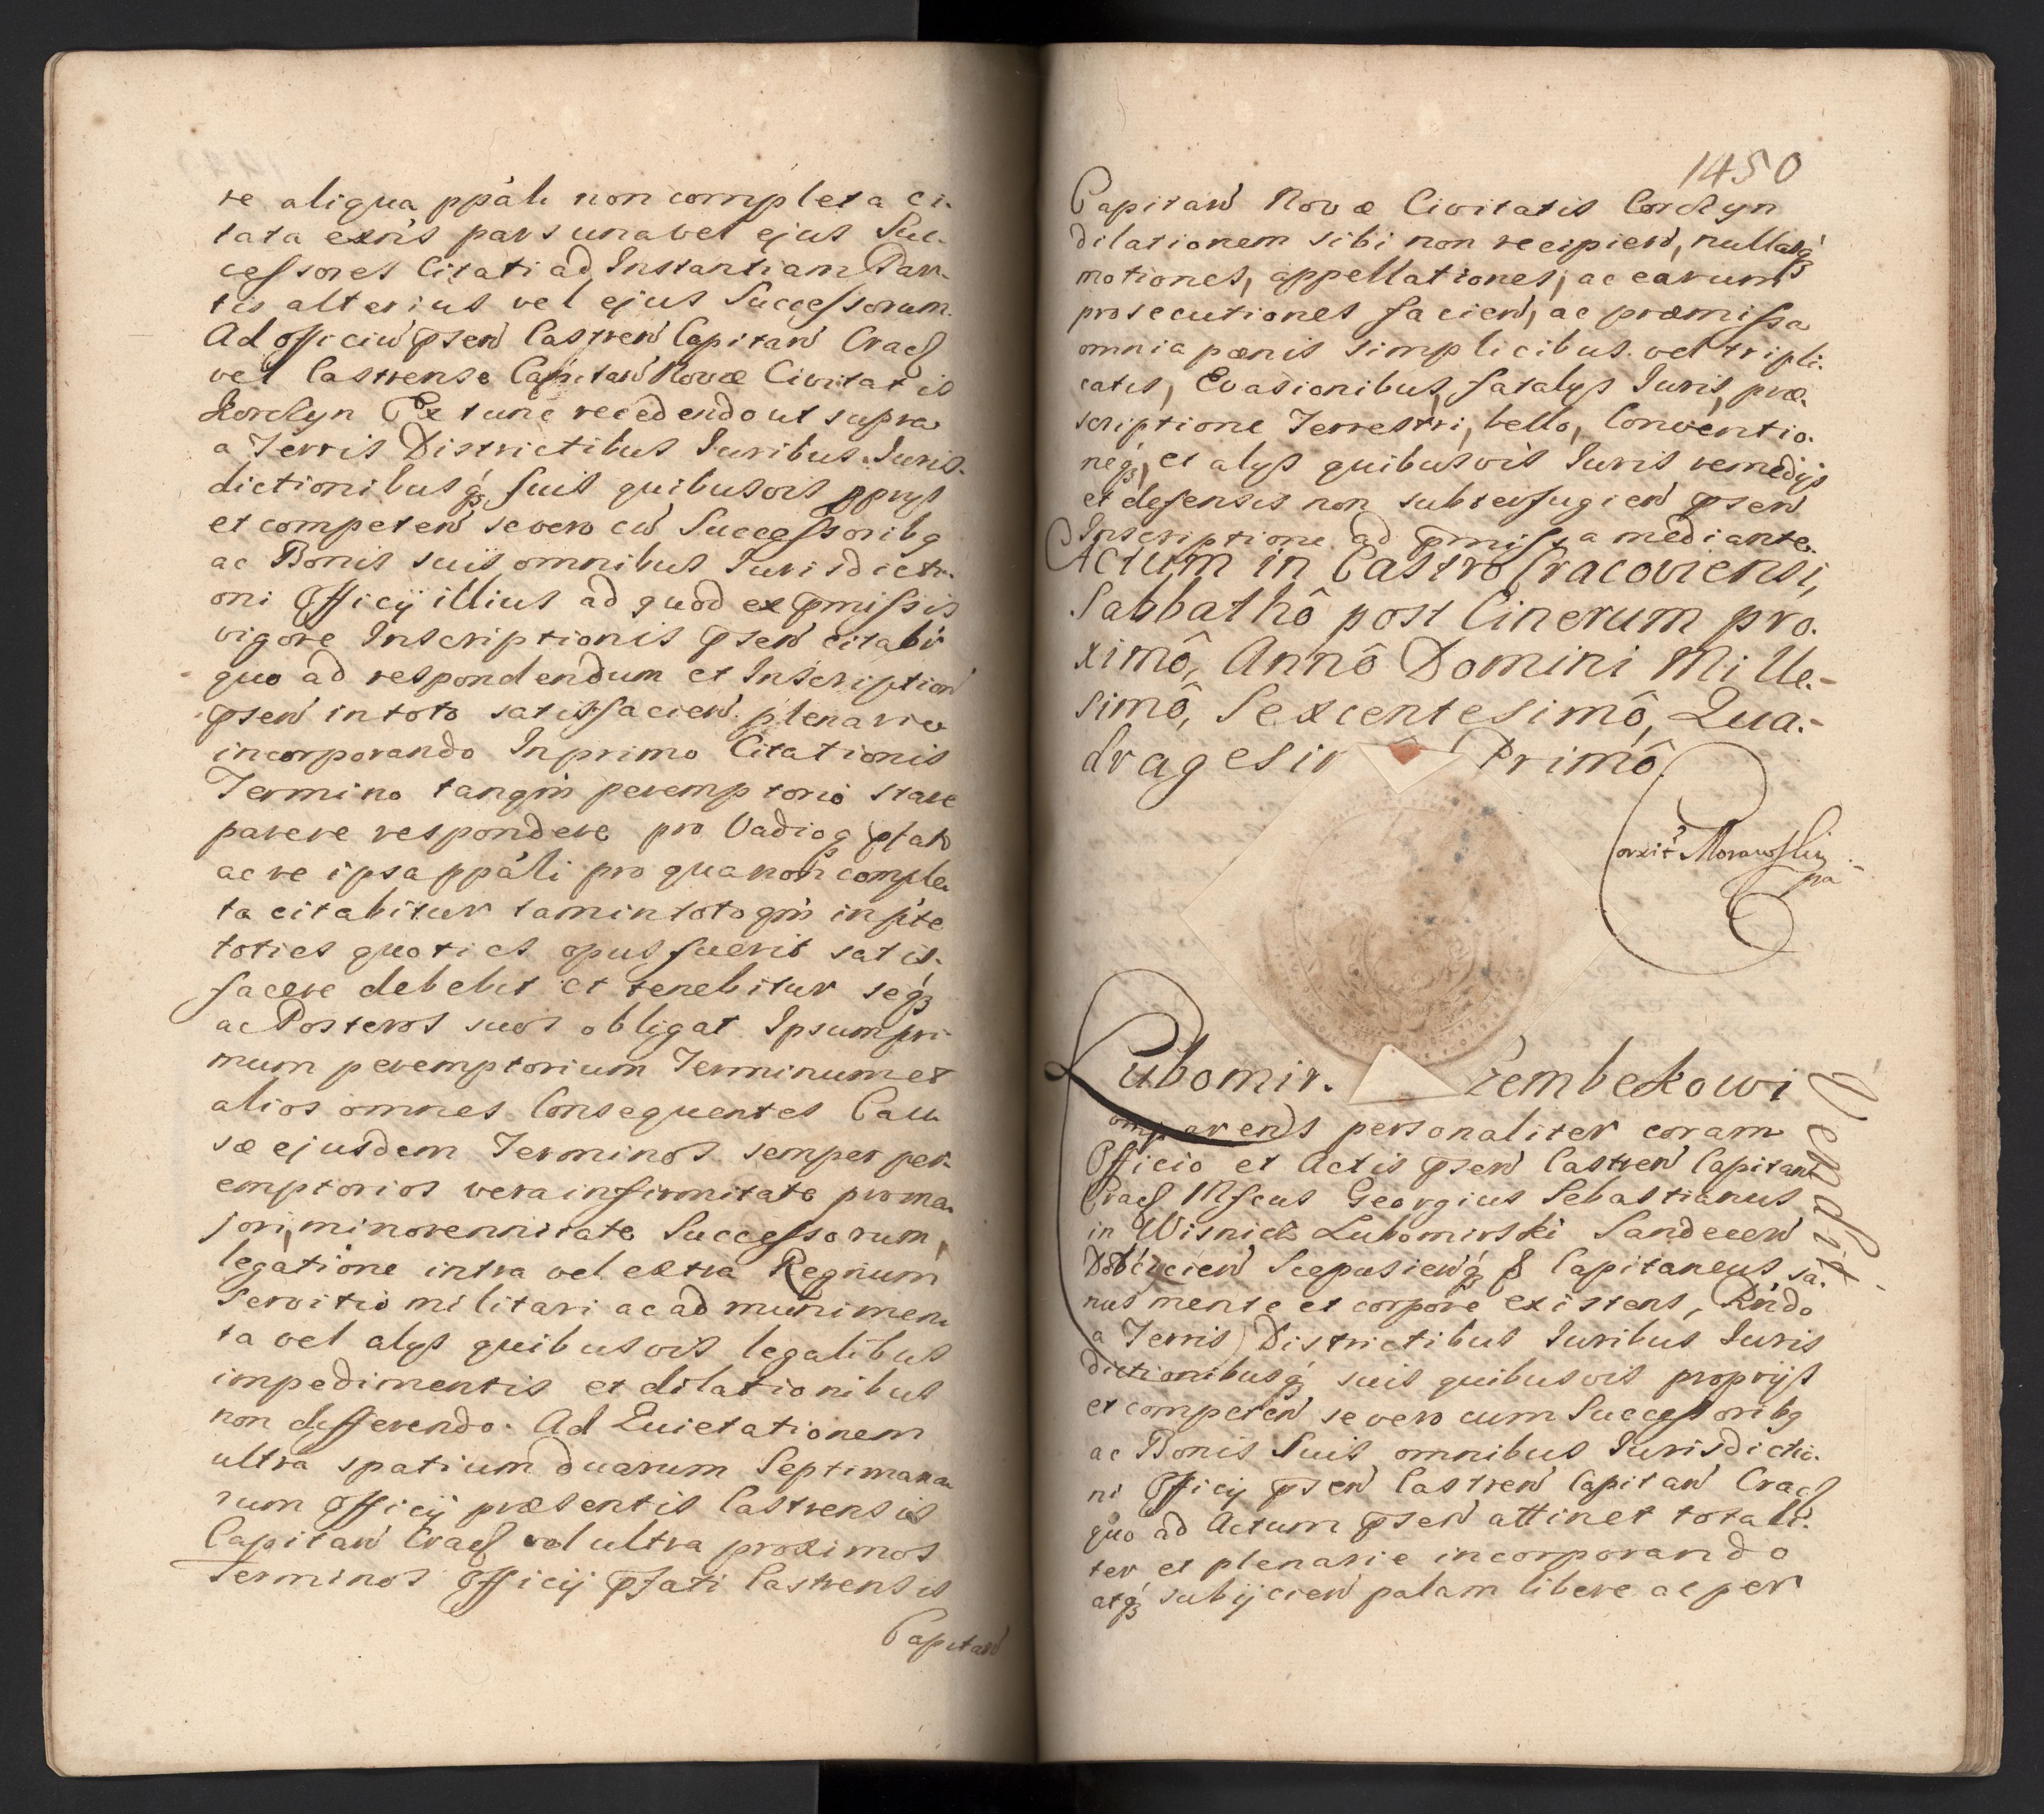 re aliqua ppáli non completa ci-
tata exñs pars una vel ejus Suc-
cessores Citati ad Instantiam Par-
tis alterius vel ejus Successorum.
Ad officiu psen Castren Capitan Crac
vel Castrense Capitan Novæ Civitatis
Korczyn Ex tunc recedendo ut supra
a Terris Districtibus Iuribus Iuris-
dictionibusq suis quibusvis pprys
et competen se vero cu Successoribq
ac Bonis suis omnibus Iurisdicti-
oni Officij illius ad quod ex pmissis
vigore Inscriptionis psen citabr
quo ad respondendum et Inscription
psen in toto satisfacien plenarie
incorporando In primo Citationis
Termino tanqm peremptorio stare
parere respondere pro Vadioq pfato
ac re ipsa ppáli pro qua non comple-
ta citabitur tam in toto qm in pte
toties quoties opus fuerit satis-
facere debebit et tenebitur seq
ac Posteros suos obligat Ipsum pri-
mum peremptorium Terminum et
alios omnes Consequentes Cau-
sæ ejusdem Terminos semper per-
emptorios vera infirmitate pro ma-
jori, minorennitate Successorum,
legatione intra vel extra Regnum
servitio militari ac ad munimen-
ta vel alys quibusvis legalibus
impedimentis et dilationibus
non differendo. Ad Quietationem
ultra spatium duarum Septimana-
rum Officij præsentis Castrensis
Capitan Crac vel ultra proximos
Terminos Officij pfati Castrensis
Capitan
1450
Capitan Novæ Civitatis Corczyn
dilationem sibi non recipien, nullasq
motiones, appellationes, ac earum
prosecutiones facien, ac præmissa
omnia pænis simplicibus vel tripli-
catis, Evasionibus, fatalys Iuris, præ-
scriptione Terrestri, bello, Conventio-
neq, et alys quibusvis Iuris remedijs
et defensis non subterfugien psen
Inscriptione ad pmissa mediante.
Actum in Castro Cracoviensi,
Sabbathô post Cinerum pro-
ximô, Annô Domini Mille-
simô, Sexcentesimô, Qua-
dragesi Primô
Morawski
mpa
Lubomir. zembekowi
Vendit
omparens personaliter coram
Officio et Actis psen Castren Capitan
Crac Mfcus Georgius Sebastianus
in Wisnicz Lubomirski Sandecen
Dobczicien Scepusienq & Capitaneus sa-
nus mente et corpore existens, Rndo
a Terris Districtibus Iuribus Iuris
dictionibusq suis quibusvis proprijs
et competen se vero cum Successoribq
ac Bonis Suis omnibus Iurisdictio-
ni Officij psen Castren Capitan Crac
quo ad Actum psen attinet totali-
ter et plenarie incorporando
atq subijcien palam libere ac per